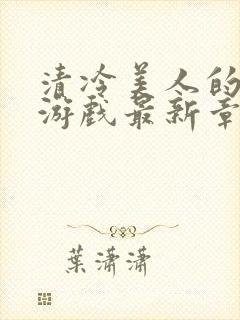 清冷美人的
游戏最新章
葉潇潇